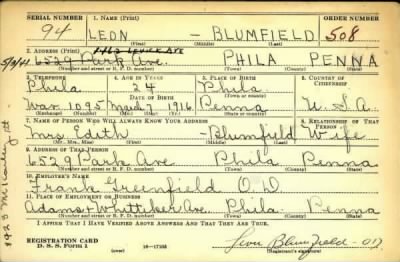 SERIAL NUMBER 1. NAME (Print) ORDER NUMBER
94 LEON - BLUMFIELD 508
(First) (Middle) (Last)
2. ADDRESS (Print)
6529 Park Ave. PHILA PENNA
(Number and street or R. F. D. number) (Town) (County) (State)
3. TELEPHONE 4. AGE IN YEARS 5. PLACE OF BIRTH 6. COUNTRY OF CITIZENSHIP
Phila 24 Phila
DATE OF BIRTH (Town or county)
Wav. 1095 March 7 1916 Penna U.S.A.
(Exchange) (Number) (Mo.) (Day) (Yr.) (State or country)
7. NAME OF PERSON WHO WILL ALWAYS KNOW YOUR ADDRESS 8. RELATIONSHIP OF THAT PERSON
Mrs Edith - Blumfield Wife
(Mr., Mrs., Miss) (First) (Middle) (Last)
9. ADDRESS OF THAT PERSON
6529 Park Ave Phila Penna
(Number and street or R. F. D. number) (Town) (County) (State)
10. EMPLOYER'S NAME
Frank Greenfield O.D.
11. PLACE OF EMPLOYMENT OR BUSINESS
Adams + Whittiker Ave Phila. Penna
(Number and street or R. F. D. number) (Town) (County) (State)
I AFFIRM THAT I HAVE VERIFIED ABOVE ANSWERS AND THAT THEY ARE TRUE.
REGISTRATION CARD
D. S. S. Form 1 (over) 16-17105 Leon Blumfield - OD
(Registrant's signature)